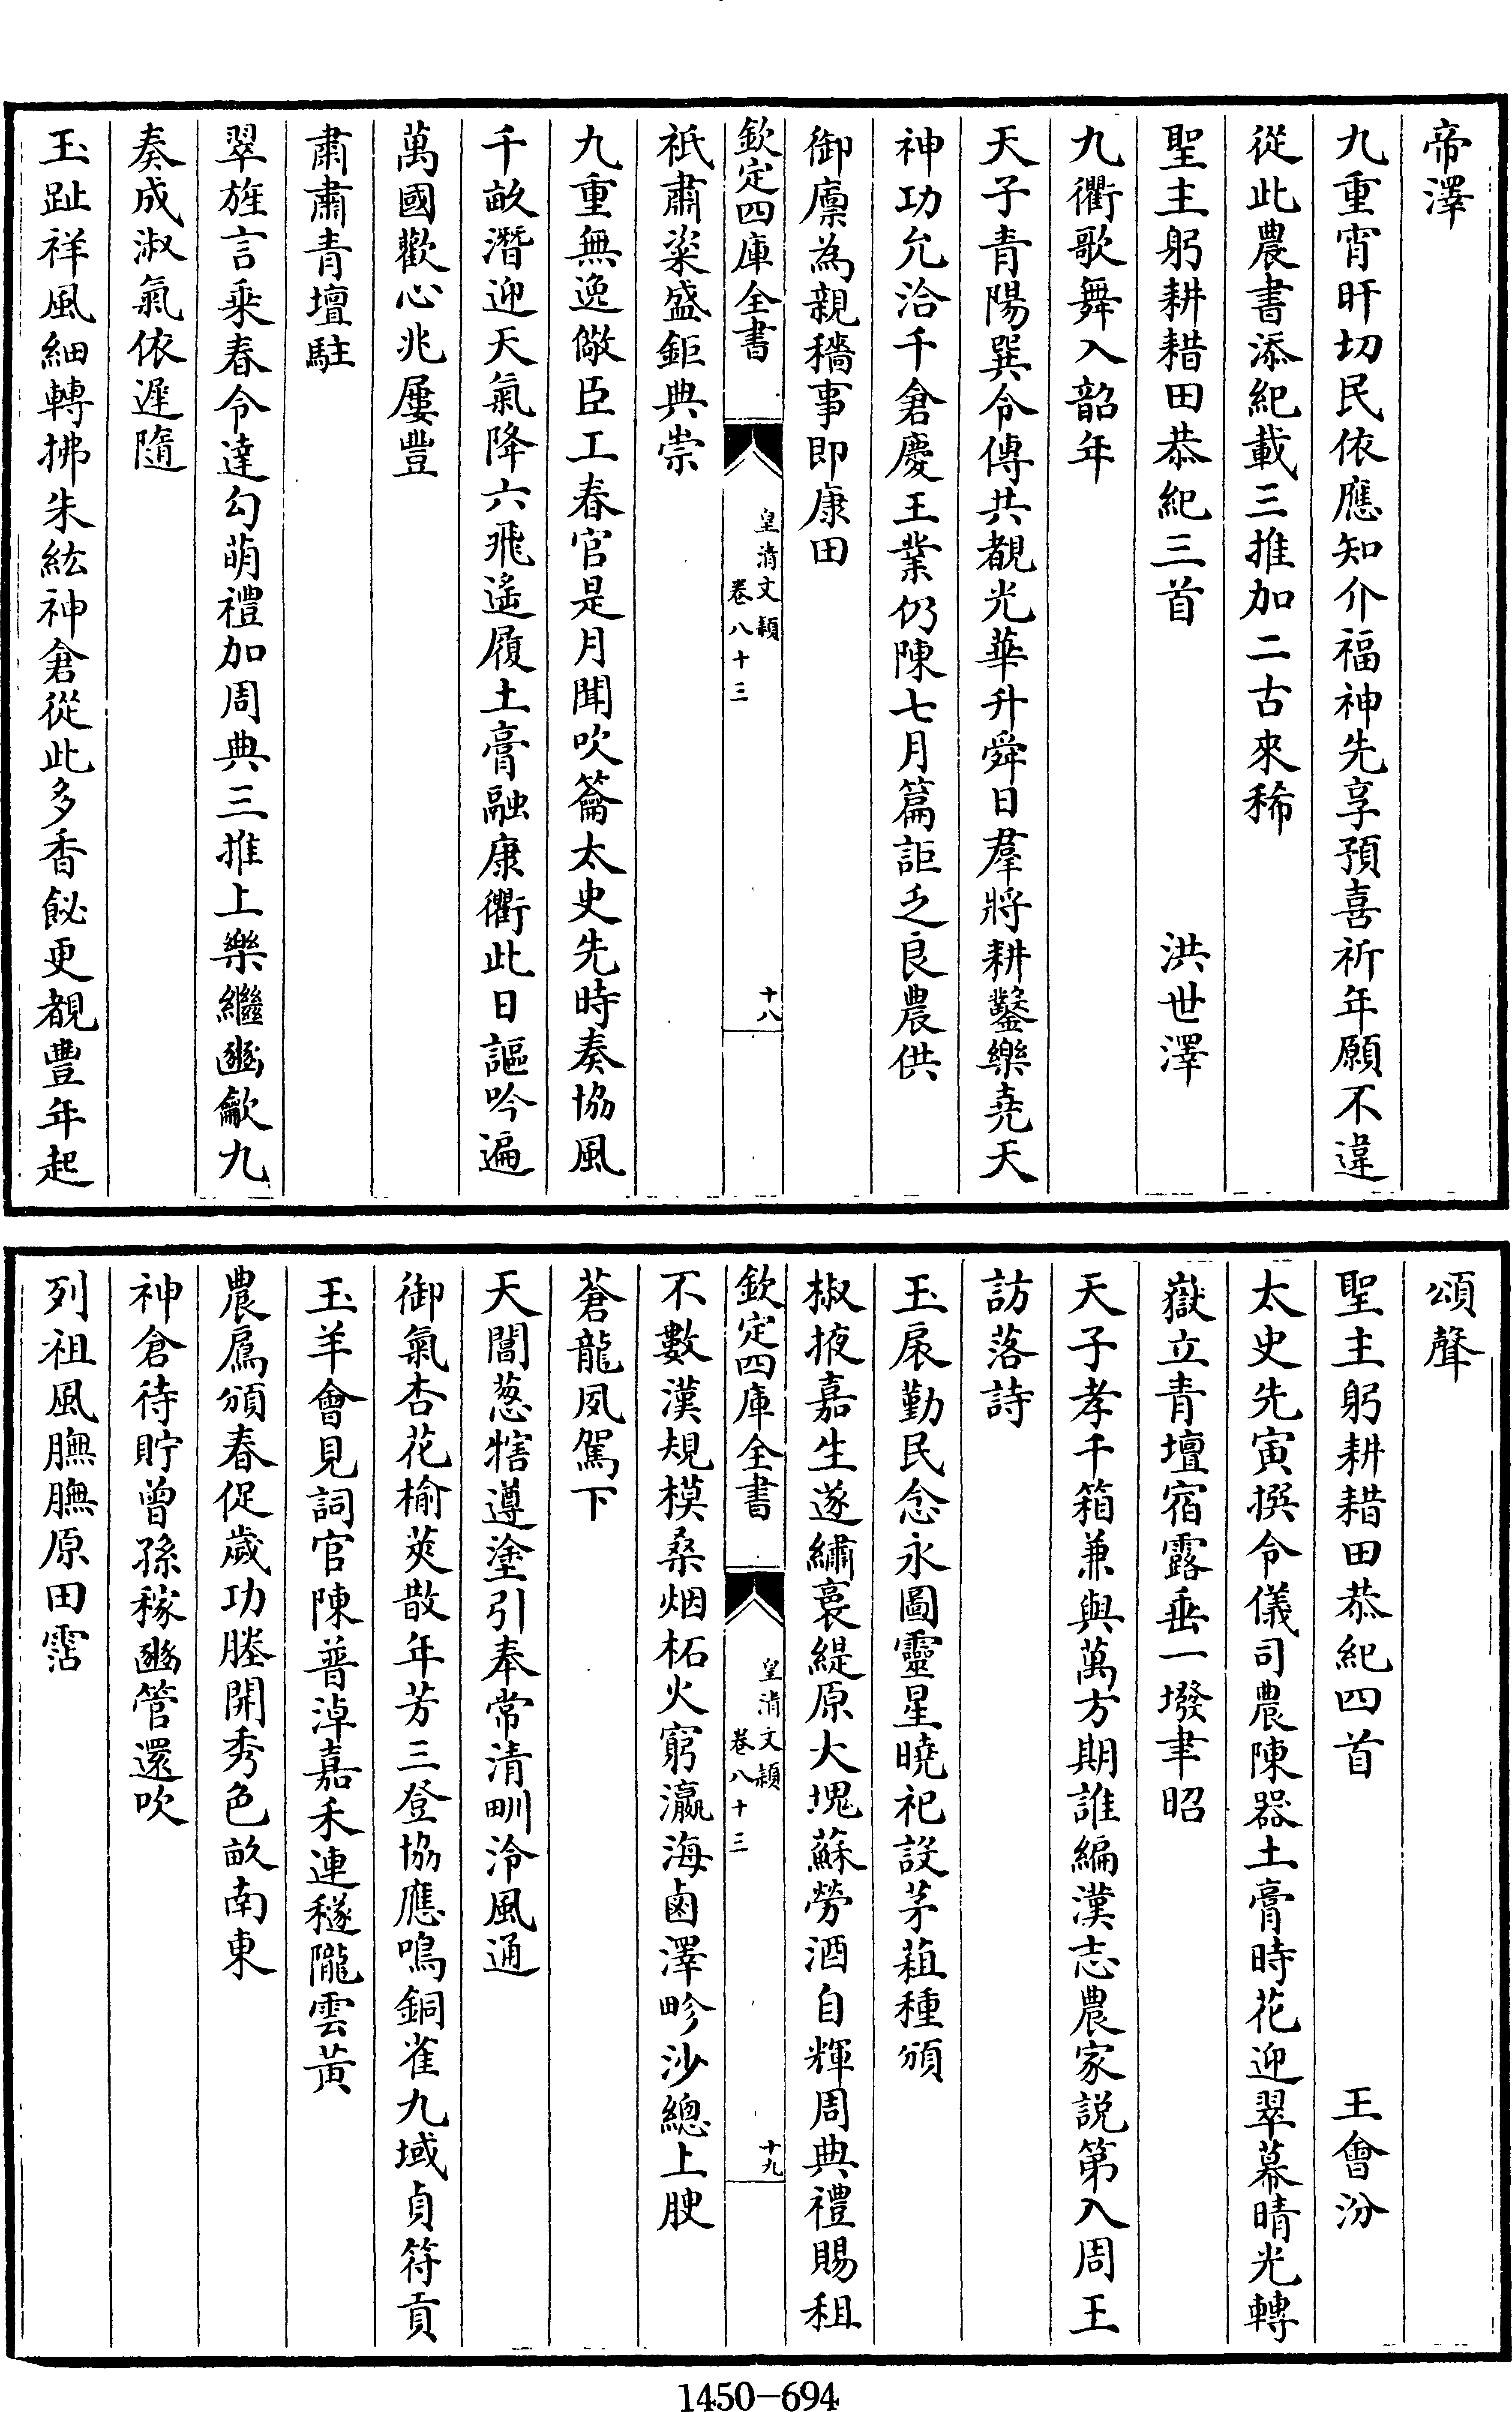 帝澤
九重宵旰切民依應知介福神先享預喜祈年願不違
從此農書添紀載三推加二古來稀
聖主躬耕耤田恭紀三首 洪世澤
九衢歌舞入韶年
天子青陽巽令傳共覩光華升舜日羣將耕鑿樂堯天
神功允洽千倉慶王業仍陳七月篇詎乏良農供
御廪為親穡事即康田
欽定四庫全書 皇清文穎 卷八十三 十八
祇肅粢盛鉅典崇
九重無逸儆臣工春官是月聞吹籥太史先時奏協風
千畝潛迎天氣降六飛遙履土膏融康衢此日謳吟遍
萬國歡心兆屢豐
肅肅青壇駐
翠旌言乘春令達勾萌禮加周典三推上樂繼豳龡九
奏成淑氣依遲隨
玉趾祥風細轉拂朱紘神倉從此多香飶更覩豐年起
頌聲
聖主躬耕耤田恭紀四首 王會汾
太史先寅撰令儀司農陳器土膏時花迎翠幕晴光轉
嶽立青壇宿露垂一墢聿昭
天子孝千箱兼與萬方期誰編漢志農家説第入周王
訪落詩
玉扆勤民念永圖靈星曉祀設茅蒩種頒
椒掖嘉生遂繡裛緹原大塊蘇勞酒自輝周典禮賜租
欽定四庫全書 皇清文穎 卷八十三 十九
不數漢規模桑烟柘火窮瀛海鹵澤畛沙總上腴
蒼龍夙駕下
天閶葱犗遵塗引奉常清甽泠風通
御氣杏花榆莢散年芳三登協應鳴銅雀九域貞符貢
玉羊會見詞官陳普淖嘉禾連穟隴雲黃
農鳸頒春促歲功塍開秀色畝南東
神倉待貯曾孫稼豳管還吹
列祖風膴膴原田霑